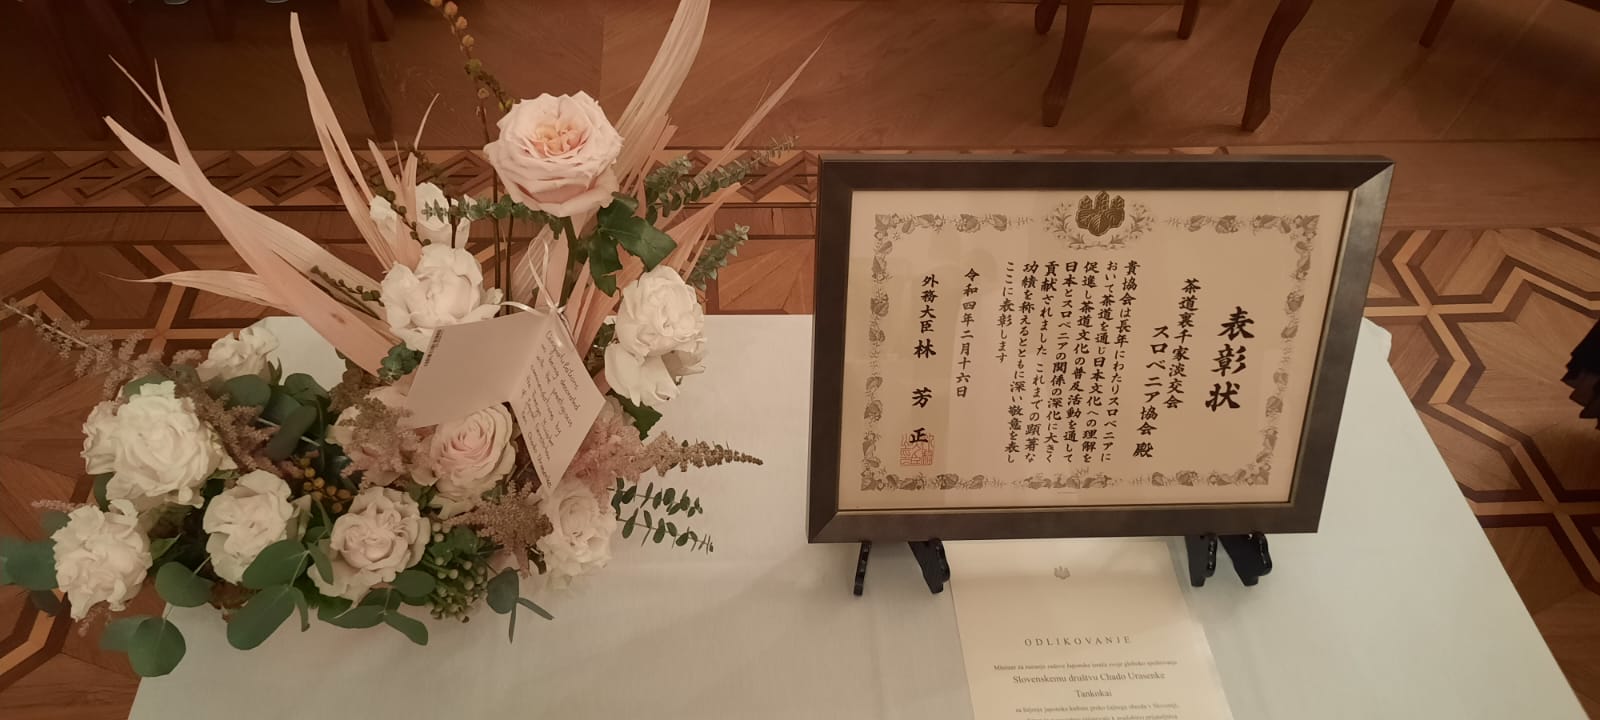 表彰状
茶道裏千家淡交会
スロベニア協会 殿
貴協会は長年にわたりスロベニアに
おいて茶道を通じ日本文化への理解を
促進し茶道文化の普及活動を通して
日本とスロベニアの関係の深化に大きく
貢献されました これまでの顕著な
功績を称えるとともに深い敬意を表し
ここに表彰します
令和四年二月十六日
外務大臣 林 芳正
Congratulations
ODLIKOVANJE
Minister za zunanje zadeve Japonske izraža svoje globoko spoštovanje
Slovenskemu društvu Chado Urasenke
Tankokai
za širjenje japonske kulture preko čajnega obreda v Sloveniji,